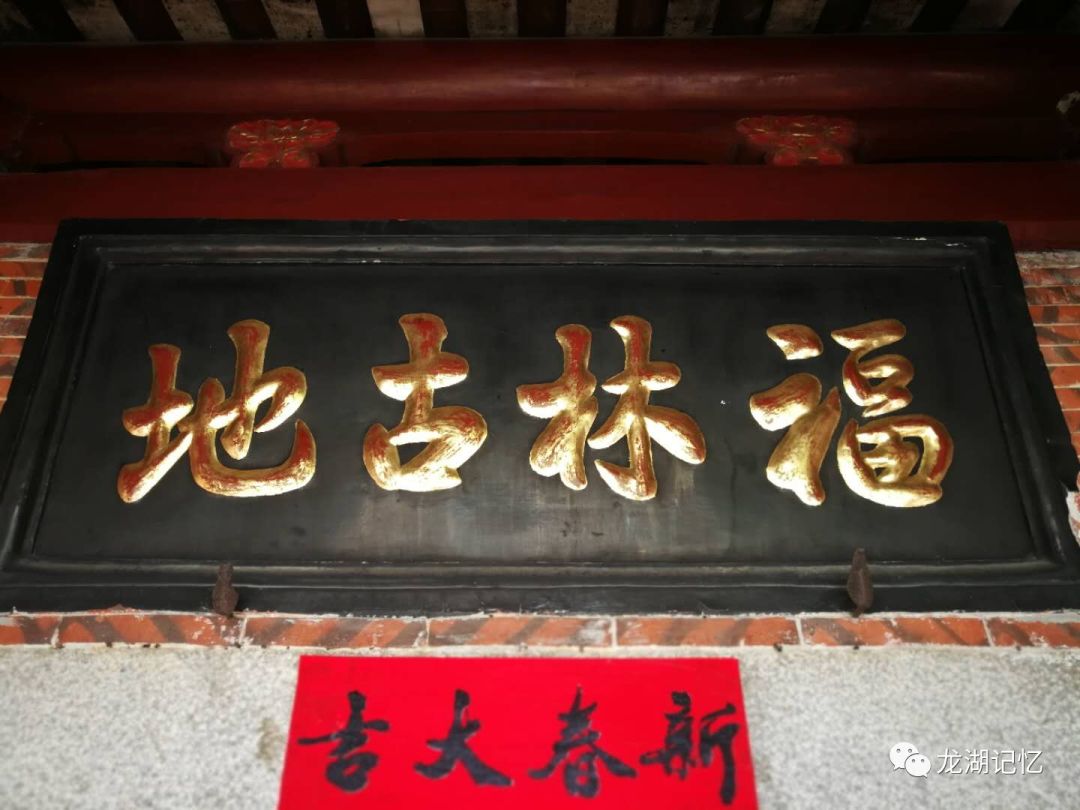 福林古地
新春大吉
龙湖记忆